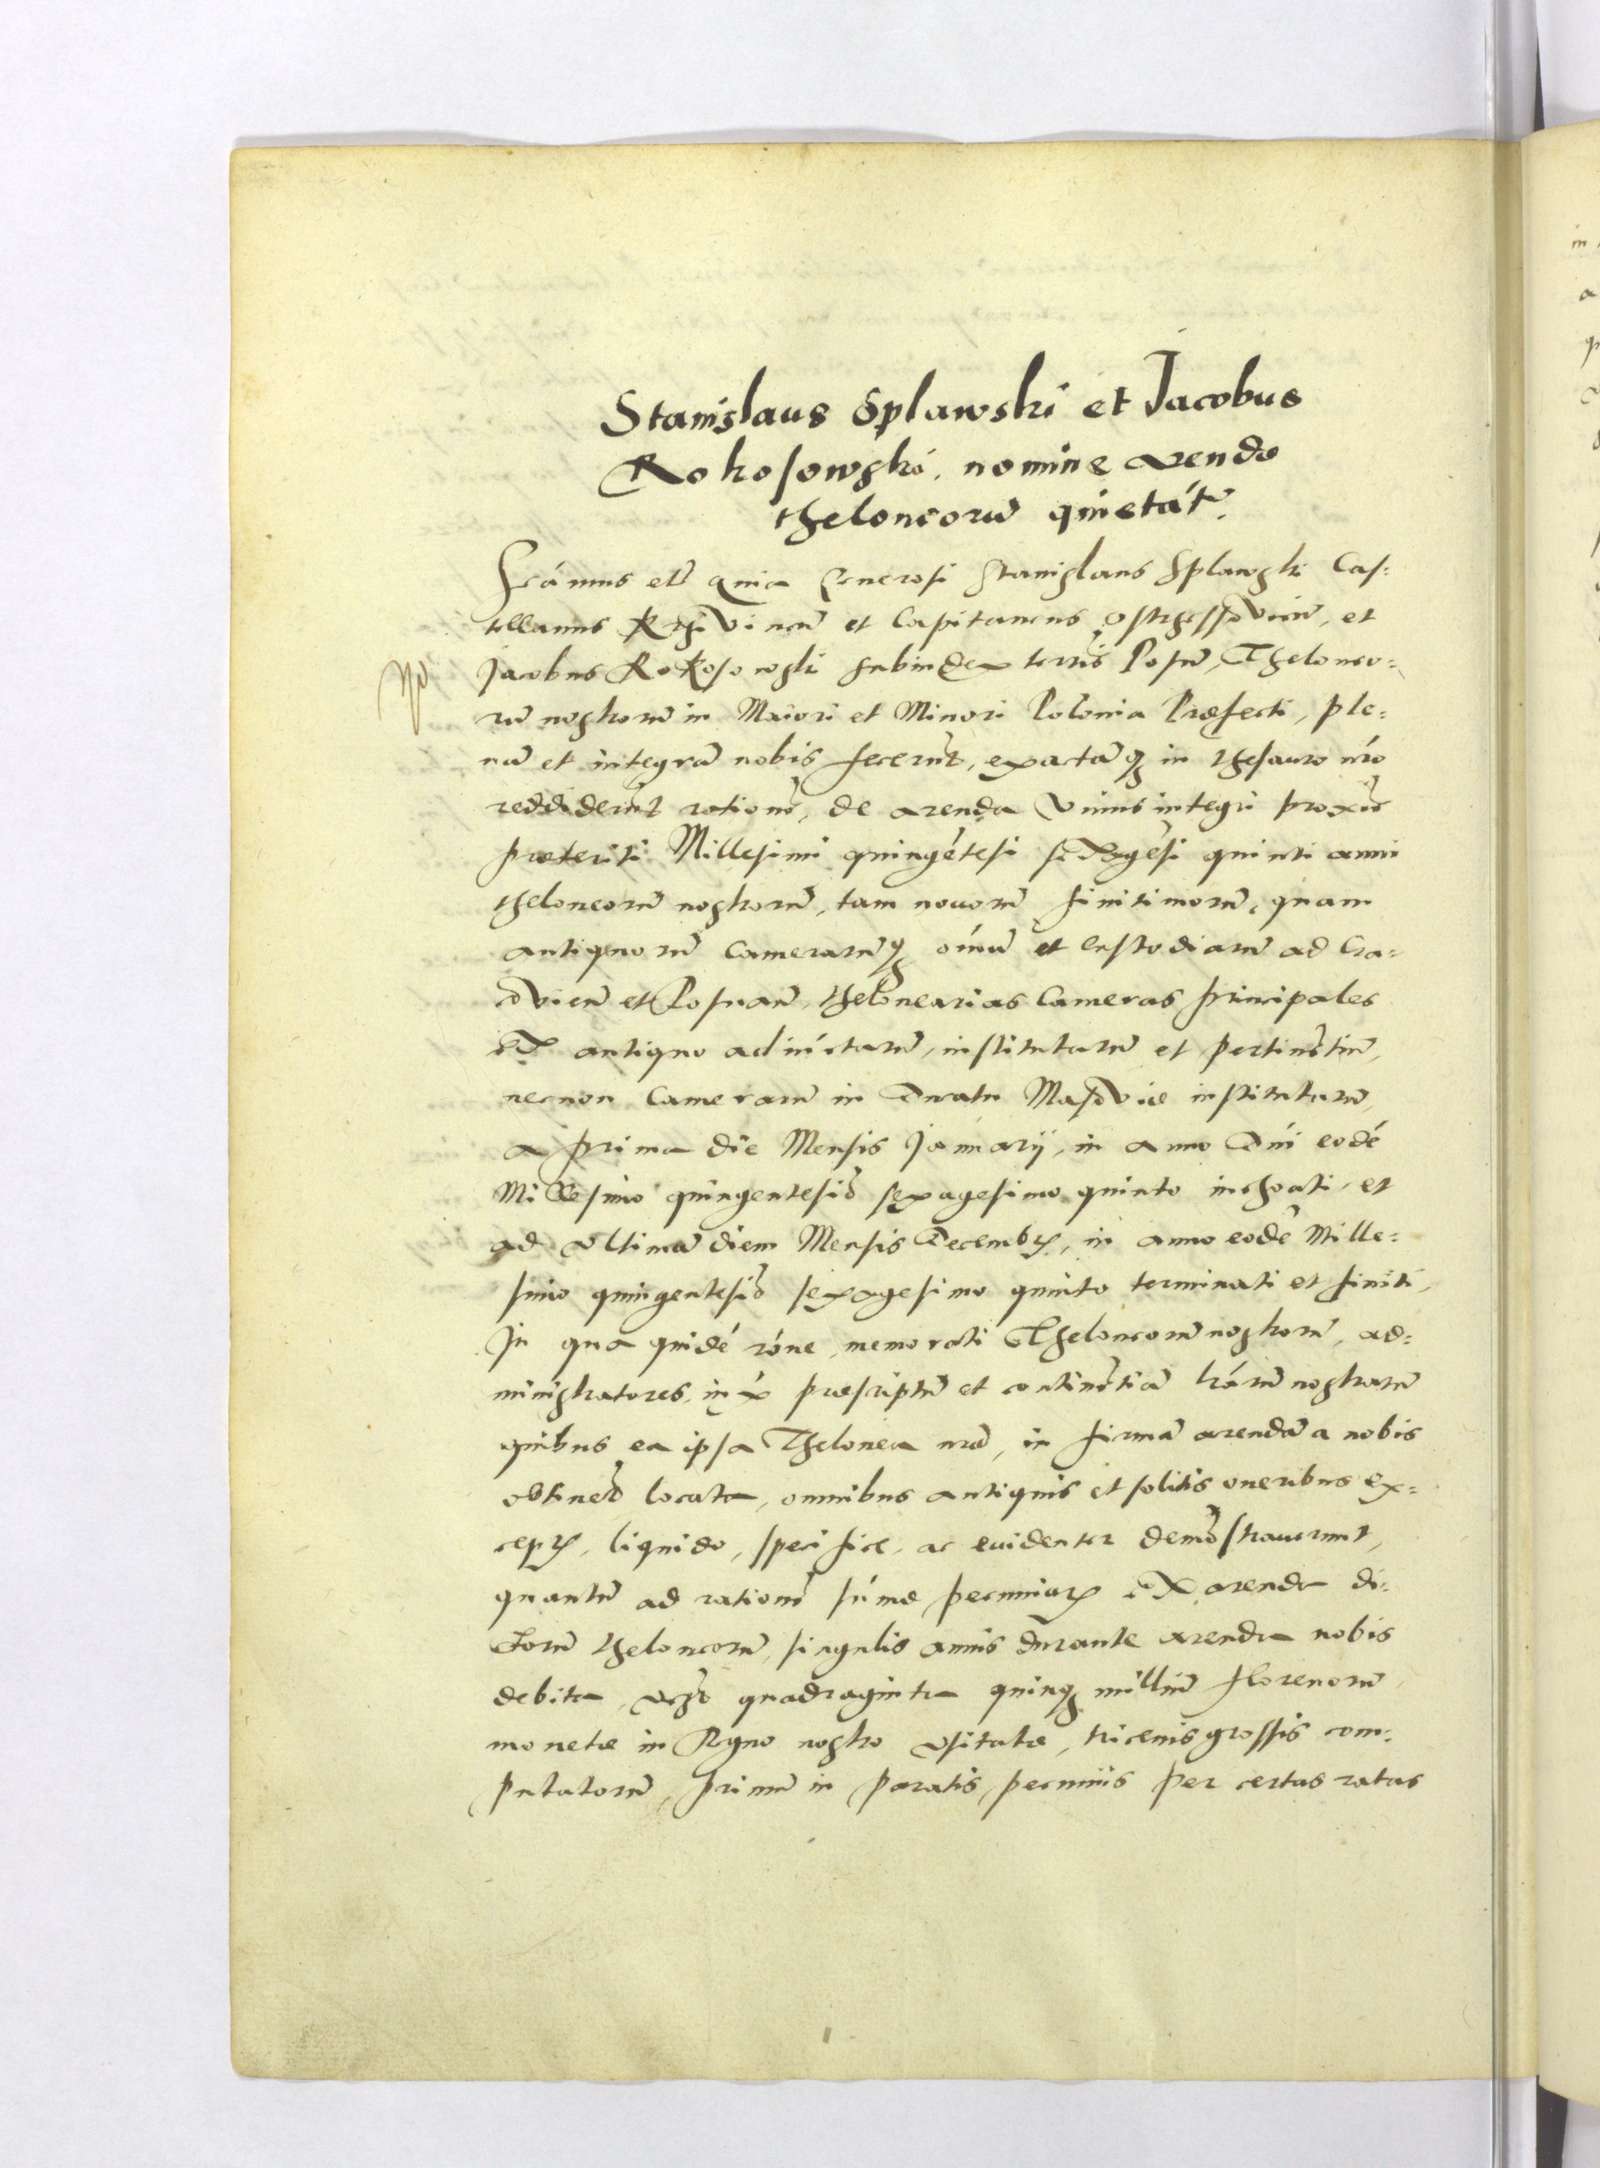 Stanislaus Splawski et Jacobus
Rokosowski, nomine arende
theloneorũ quietãt̃.
Scímus etc̃ quia Generosi Stanislaus Splawski Cas:
tellanus Krziviñen̄ et Capitaneus Ostrzessoviēn̄, et
Jacobus Rokosowski Subiudex terrẽs Posn̄, Theloneo:
rũ nostrorũ in Maiori et Minori Polonia Præfecti, ple:
nã et integrã nobis fecerũt, exactãq; in thesauro nr̃o
reddiderũt rationẽ, de arenda unius integri proximẽ
præteriti Millesimi quingẽtesi sexagesi quinti anni
theloneorũ nostrorũ, tam novorũ finitimorũ, quam
antiquorũ Camerarũq; oĩnũ et Custodiarũ ad Cra:
coviēn̄ et Posnan̄, thelonearias Cameras principales
ex antiquo adiũctarũ, institutarũ et pertinẽtiũ,
necnon Camerarũ in Ducatu Masoviæ institutarũ,
a prima die Mensis Januarij, in anno Dñi eodẽ
Millesimo quingentesiõ sexagesimo quinto inchoati, et
ad ultimã diem Mensis Decembr̃, in anno eodẽ Mille:
simo quingentesiõ sexagesimo quinto terminati et finiti,
In qua quidẽ rõne, memorati Theloneorũ nostrorũ, ad:
ministratores, iux̃ præscriptũ et continẽtiã lr̃arũ nostrarũ
quibus ea ipsa Thelonea nr̃a, in firmã arendã a nobis
obtinẽt locata, omnibus antiquis et solitis oneribus ex:
cept̃, liquido, specifice, ac evidenter demõstraverunt,
quantũ ad rationẽ sũmæ pecuniar̃ ex arenda di:
ctorũ theloneorũ, singulis annis durante arenda nobis
debita, vzt̃ quadraginta quinq; milliũ florenorũ,
monetæ in Regno nostro usitatæ, tricenis grossis com:
putatorũ, primũ in paratis pecuniis per certas ratas